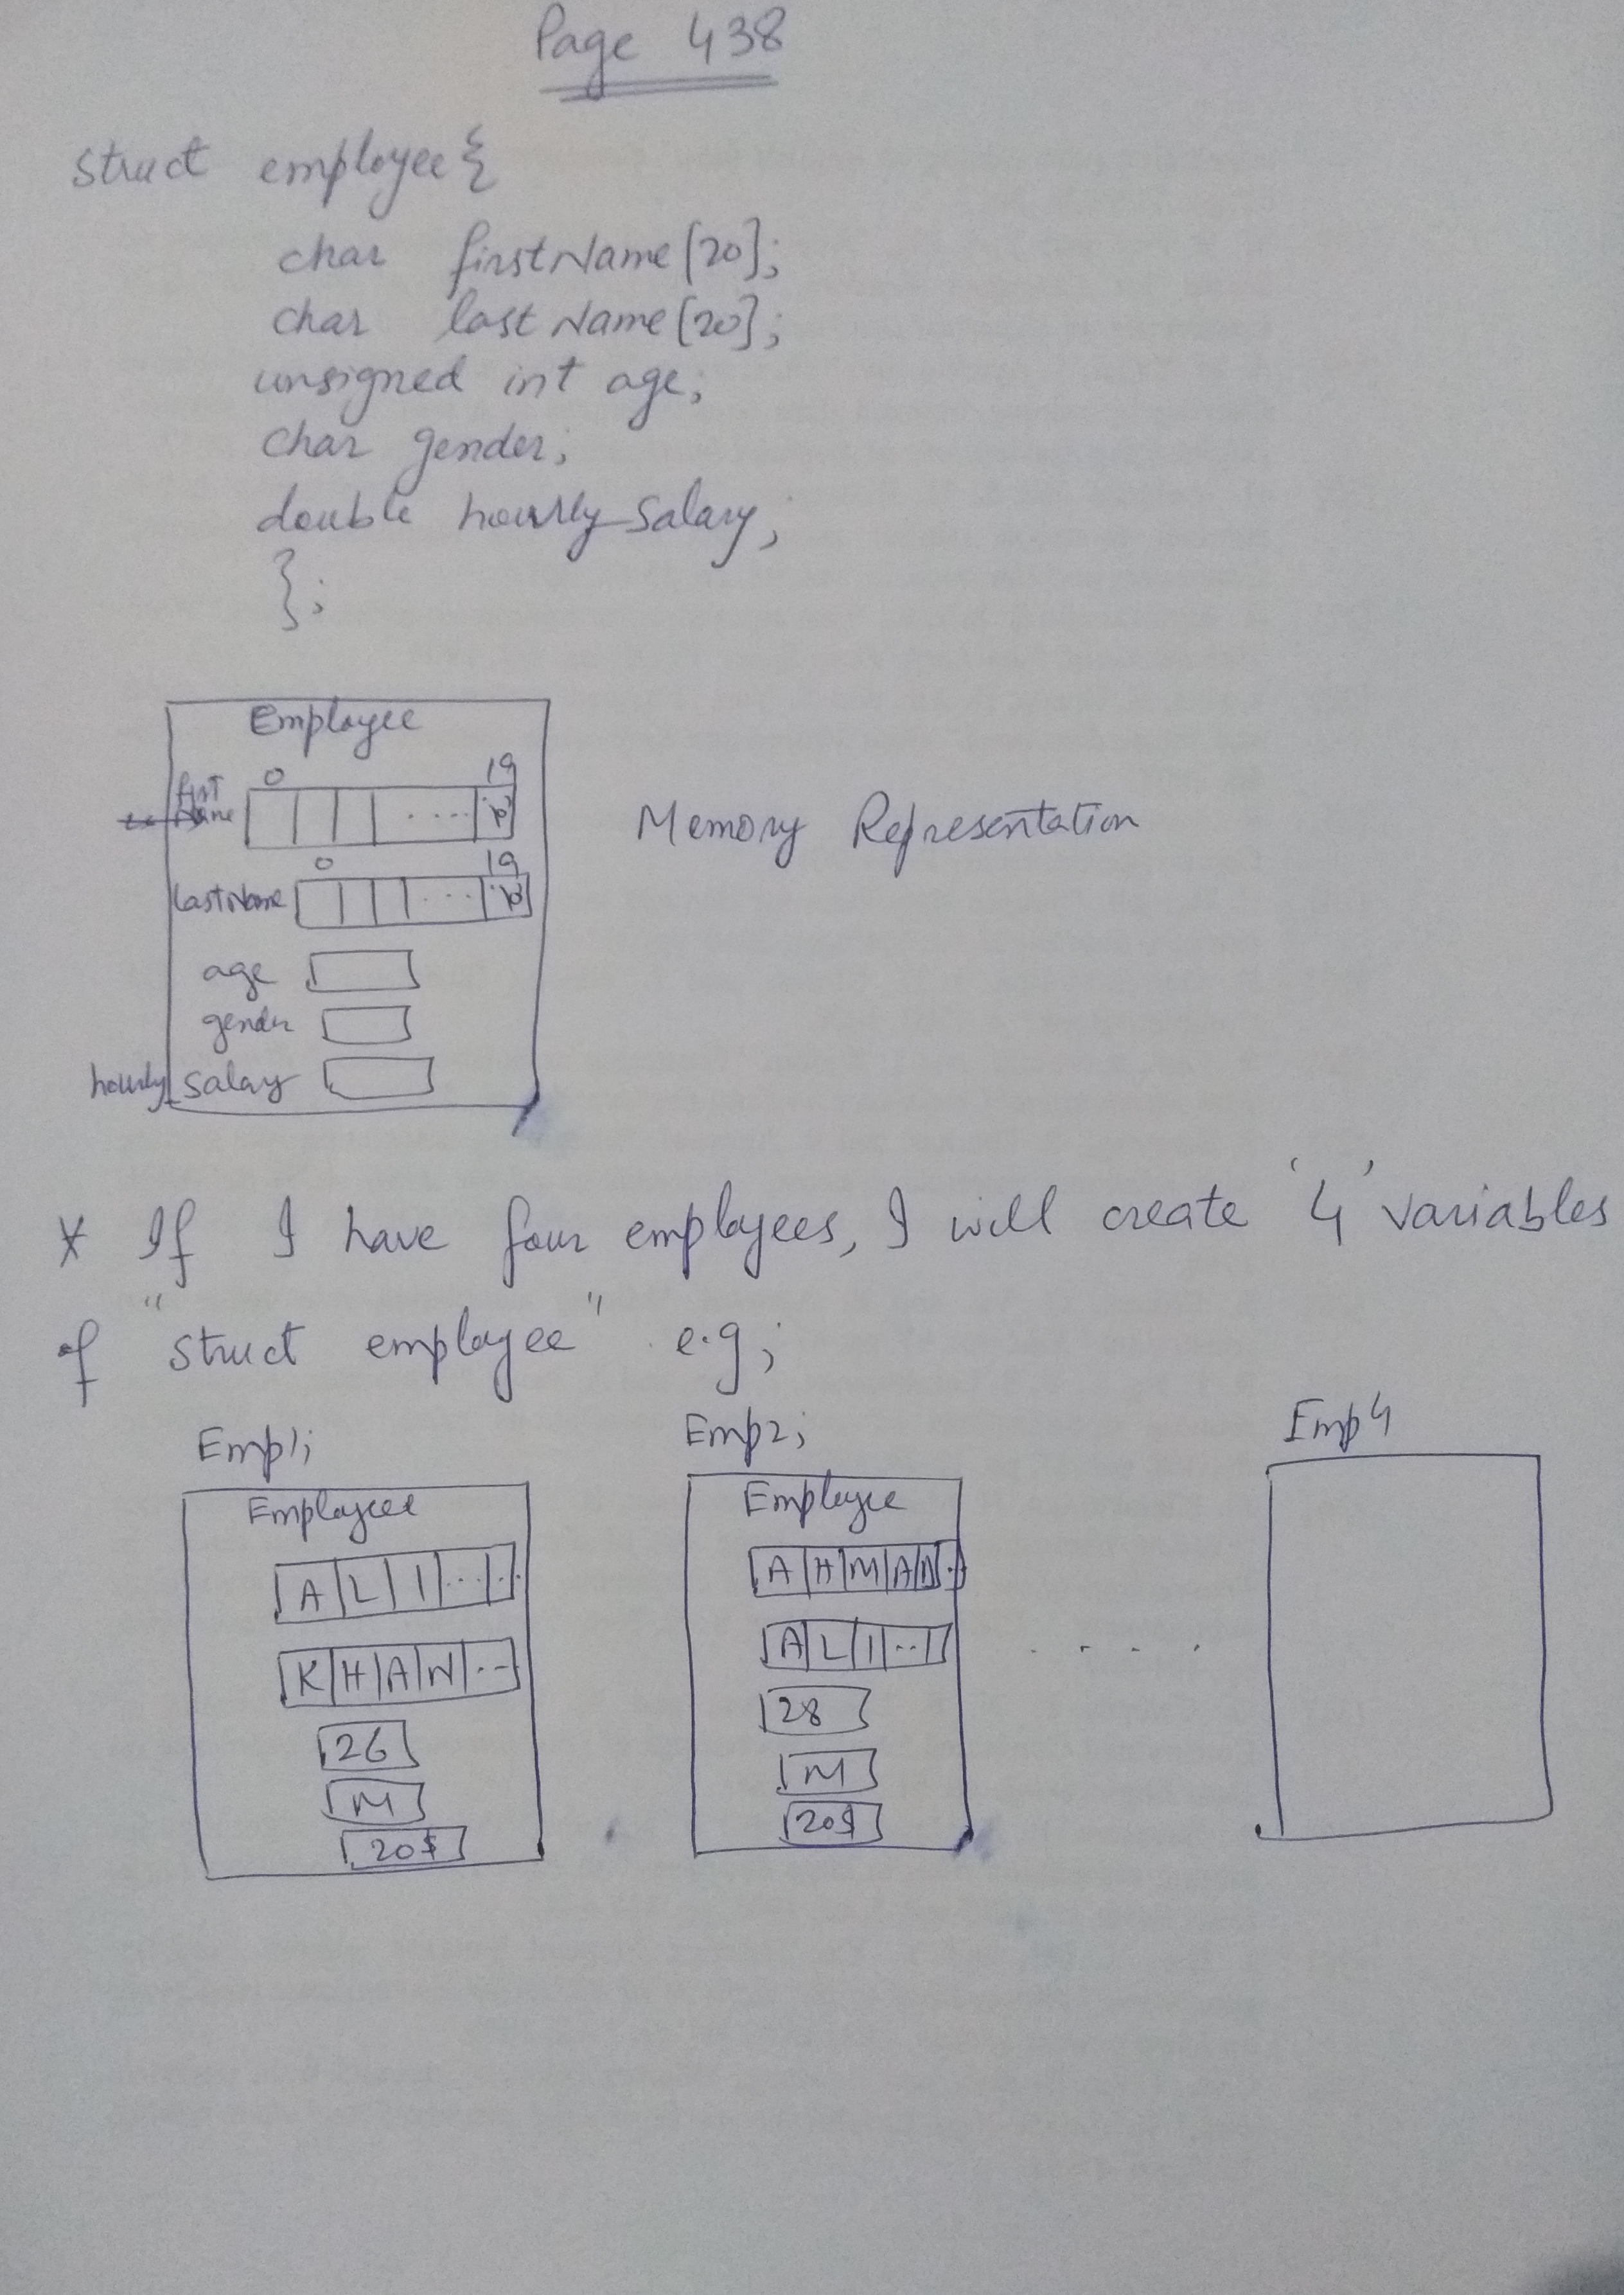 Page 438
struct employee{
char firstName[20];
char lastName[20];
unsigned int age;
char gender;
double hourly_salary;
};
Employee
0 19
first
Name .... '\0'
0 19
lastName ... '\0'
age
gender
hourly_salary
Memory Representation
* If I have four employees, I will create '4' variables
of "struct employee" e.g;
Emp1; Emp2; Emp4
Employee
A L I ...
K H A N ..
26
M
20$
Employee
A H M A D .
A L I ..
28
M
20$
. . . .